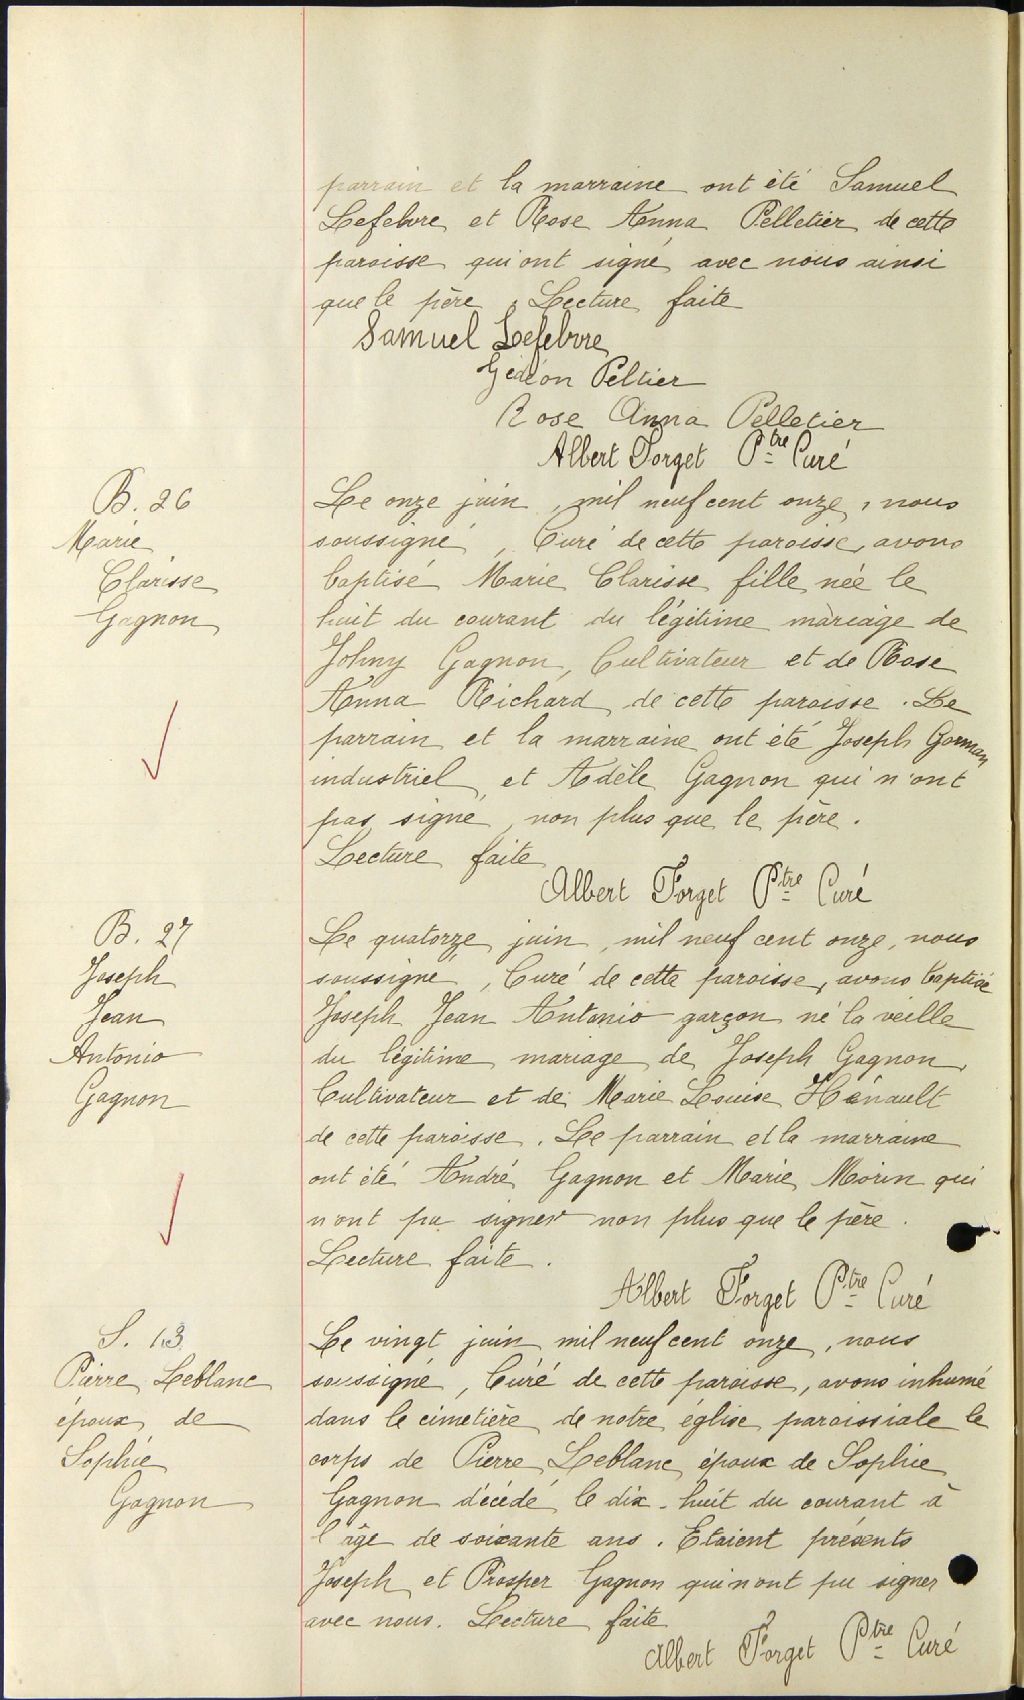 parrain et la marraine ont été Samuel
Lefebvre et Rose Anna Pelletier de cette
paroisse qui ont signé avec nous ainsi
que le père. Lecture faite
Samuel Lefebvre
Gédéon Peltier
Rose Anna Pelletier
Albert Forget Ptre Curé
B. 26
Marie
Clarisse
Gagnon
Le onze juin, mil neuf cent onze, nous
soussigné, Curé de cette paroisse, avons
baptisé Marie Clarisse fille née le
huit du courant du légitime mariage de
Johny Gagnon, Cultivateur et de Rose
Anna Richard de cette paroisse. Le
parrain et la marraine ont été Joseph Gorman
industriel et Adèle Gagnon qui n'ont
pas signé, non plus que le père.
Lecture faite
Albert Forget Ptre Curé
B. 27
Joseph
Jean
Antonio
Gagnon
Le quatorze juin, mil neuf cent onze, nous
soussigné, Curé de cette paroisse, avons baptisé
Joseph Jean Antonio garçon né la veille
du légitime mariage de Joseph Gagnon,
Cultivateur et de Marie Louise Hénault
de cette paroisse. Le parrain et la marraine
ont été André Gagnon et Marie Morin qui
n'ont pu signer non plus que le père.
Lecture faite.
Albert Forget Ptre Curé
S. 13
Pierre Leblanc
époux de
Sophie
Gagnon
Le vingt juin mil neuf cent onze, nous
soussigné, Curé de cette paroisse, avons inhumé
dans le cimetière de notre église paroissiale le
corps de Pierre Leblanc époux de Sophie
Gagnon décédé le dix-huit du courant à
l'âge de soixante ans. Etaient présents
Joseph et Prosper Gagnon qui n'ont pu signer
avec nous. Lecture faite
Albert Forget Ptre Curé